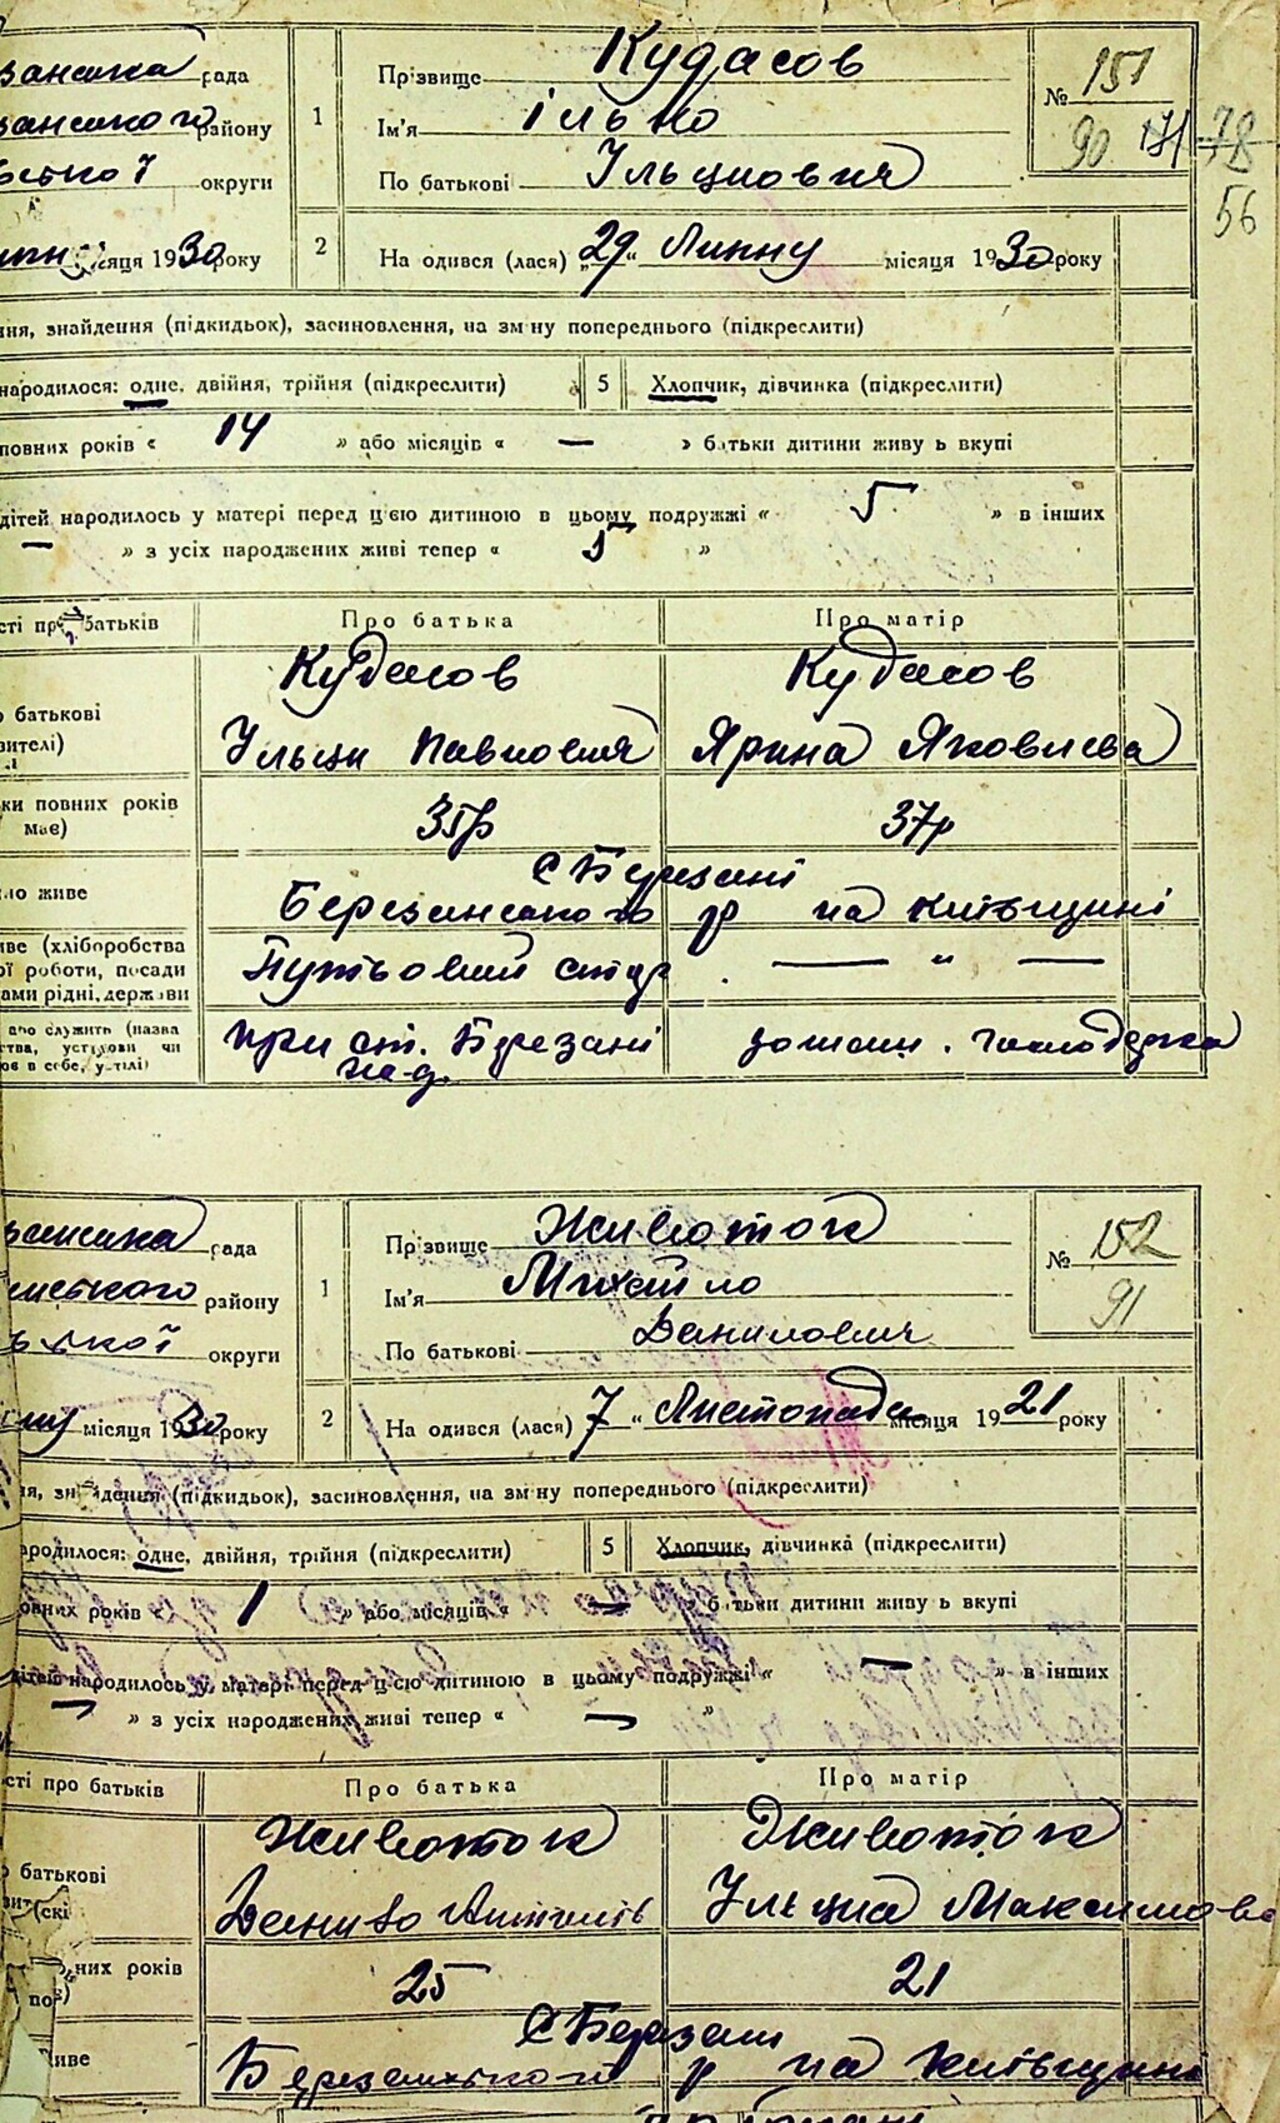 рада
Прізвище Кудасов
№ 151
району
1
Ім'я Ілько
90 171 78
округи
По батькові
56
місяця 1930 року
2
На одився (лася) „29“ Липня місяця 1930 року
ння, знайдення (підкидьок), засиновлення, на зм ну попереднього (підкреслити)
народилося: одне, двійня, трійня (підкреслити)
5
Хлопчик, дівчинка (підкреслити)
повних років « 14 » або місяців « — » батьки дитини живу ь вкупі
дітей народилось у матері перед цією дитиною в цьому подружжі « 5 » в інших
— » з усіх народжених живі тепер « 5 »
сті про батьків
Про батька
Про матір
Кудасов
Кудасов
о батькові
Павлович
Ярина Яковлева
ки повних років
має)
35р
37р
с Березані
ло живе
Березанського р на Київщині
иве (хліборобства
ої роботи, посади
ами рідні, держави
— „ —
або служить (назва
ства, установи чи
ює в себе, утілі)
при ст. Березані
домашн. господарка
рада
Прізвище Животок
№ 152
району
1
Ім'я Михайло
91
округи
По батькові Данилович
місяця 1930 року
2
На одився (лася) 7 “ Листопада місяця 1921 року
ня, знайдення (підкидьок), засиновлення, на зм ну попереднього (підкреслити)
народилося: одне, двійня, трійня (підкреслити)
5
Хлопчик, дівчинка (підкреслити)
овних років « 1 » або місяців « — » батьки дитини живу ь вкупі
дітей народилось у матері перед цією дитиною в цьому подружжі « — » в інших
— » з усіх народжених живі тепер « — »
сті про батьків
Про батька
Про матір
Животок
Животок
о батькові
Данило
Максимова
них років
25
21
с Березані
живе
Березанського р на Київщині